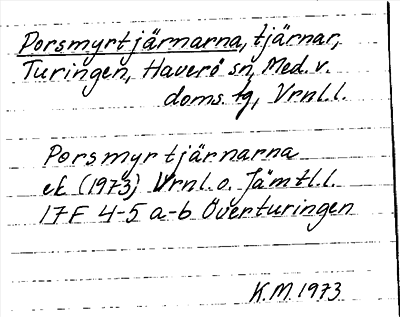 Porsmyrtjärnarna, tjärnar,
Turingen, Haverö sn, Med. v.
doms. tg, Vrnl.l.
Porsmyrtjärnarna
ek (1973) Vrnl. o. Jämtl.l.
17F 4-5 a-b Överturingen
K.M. 1973